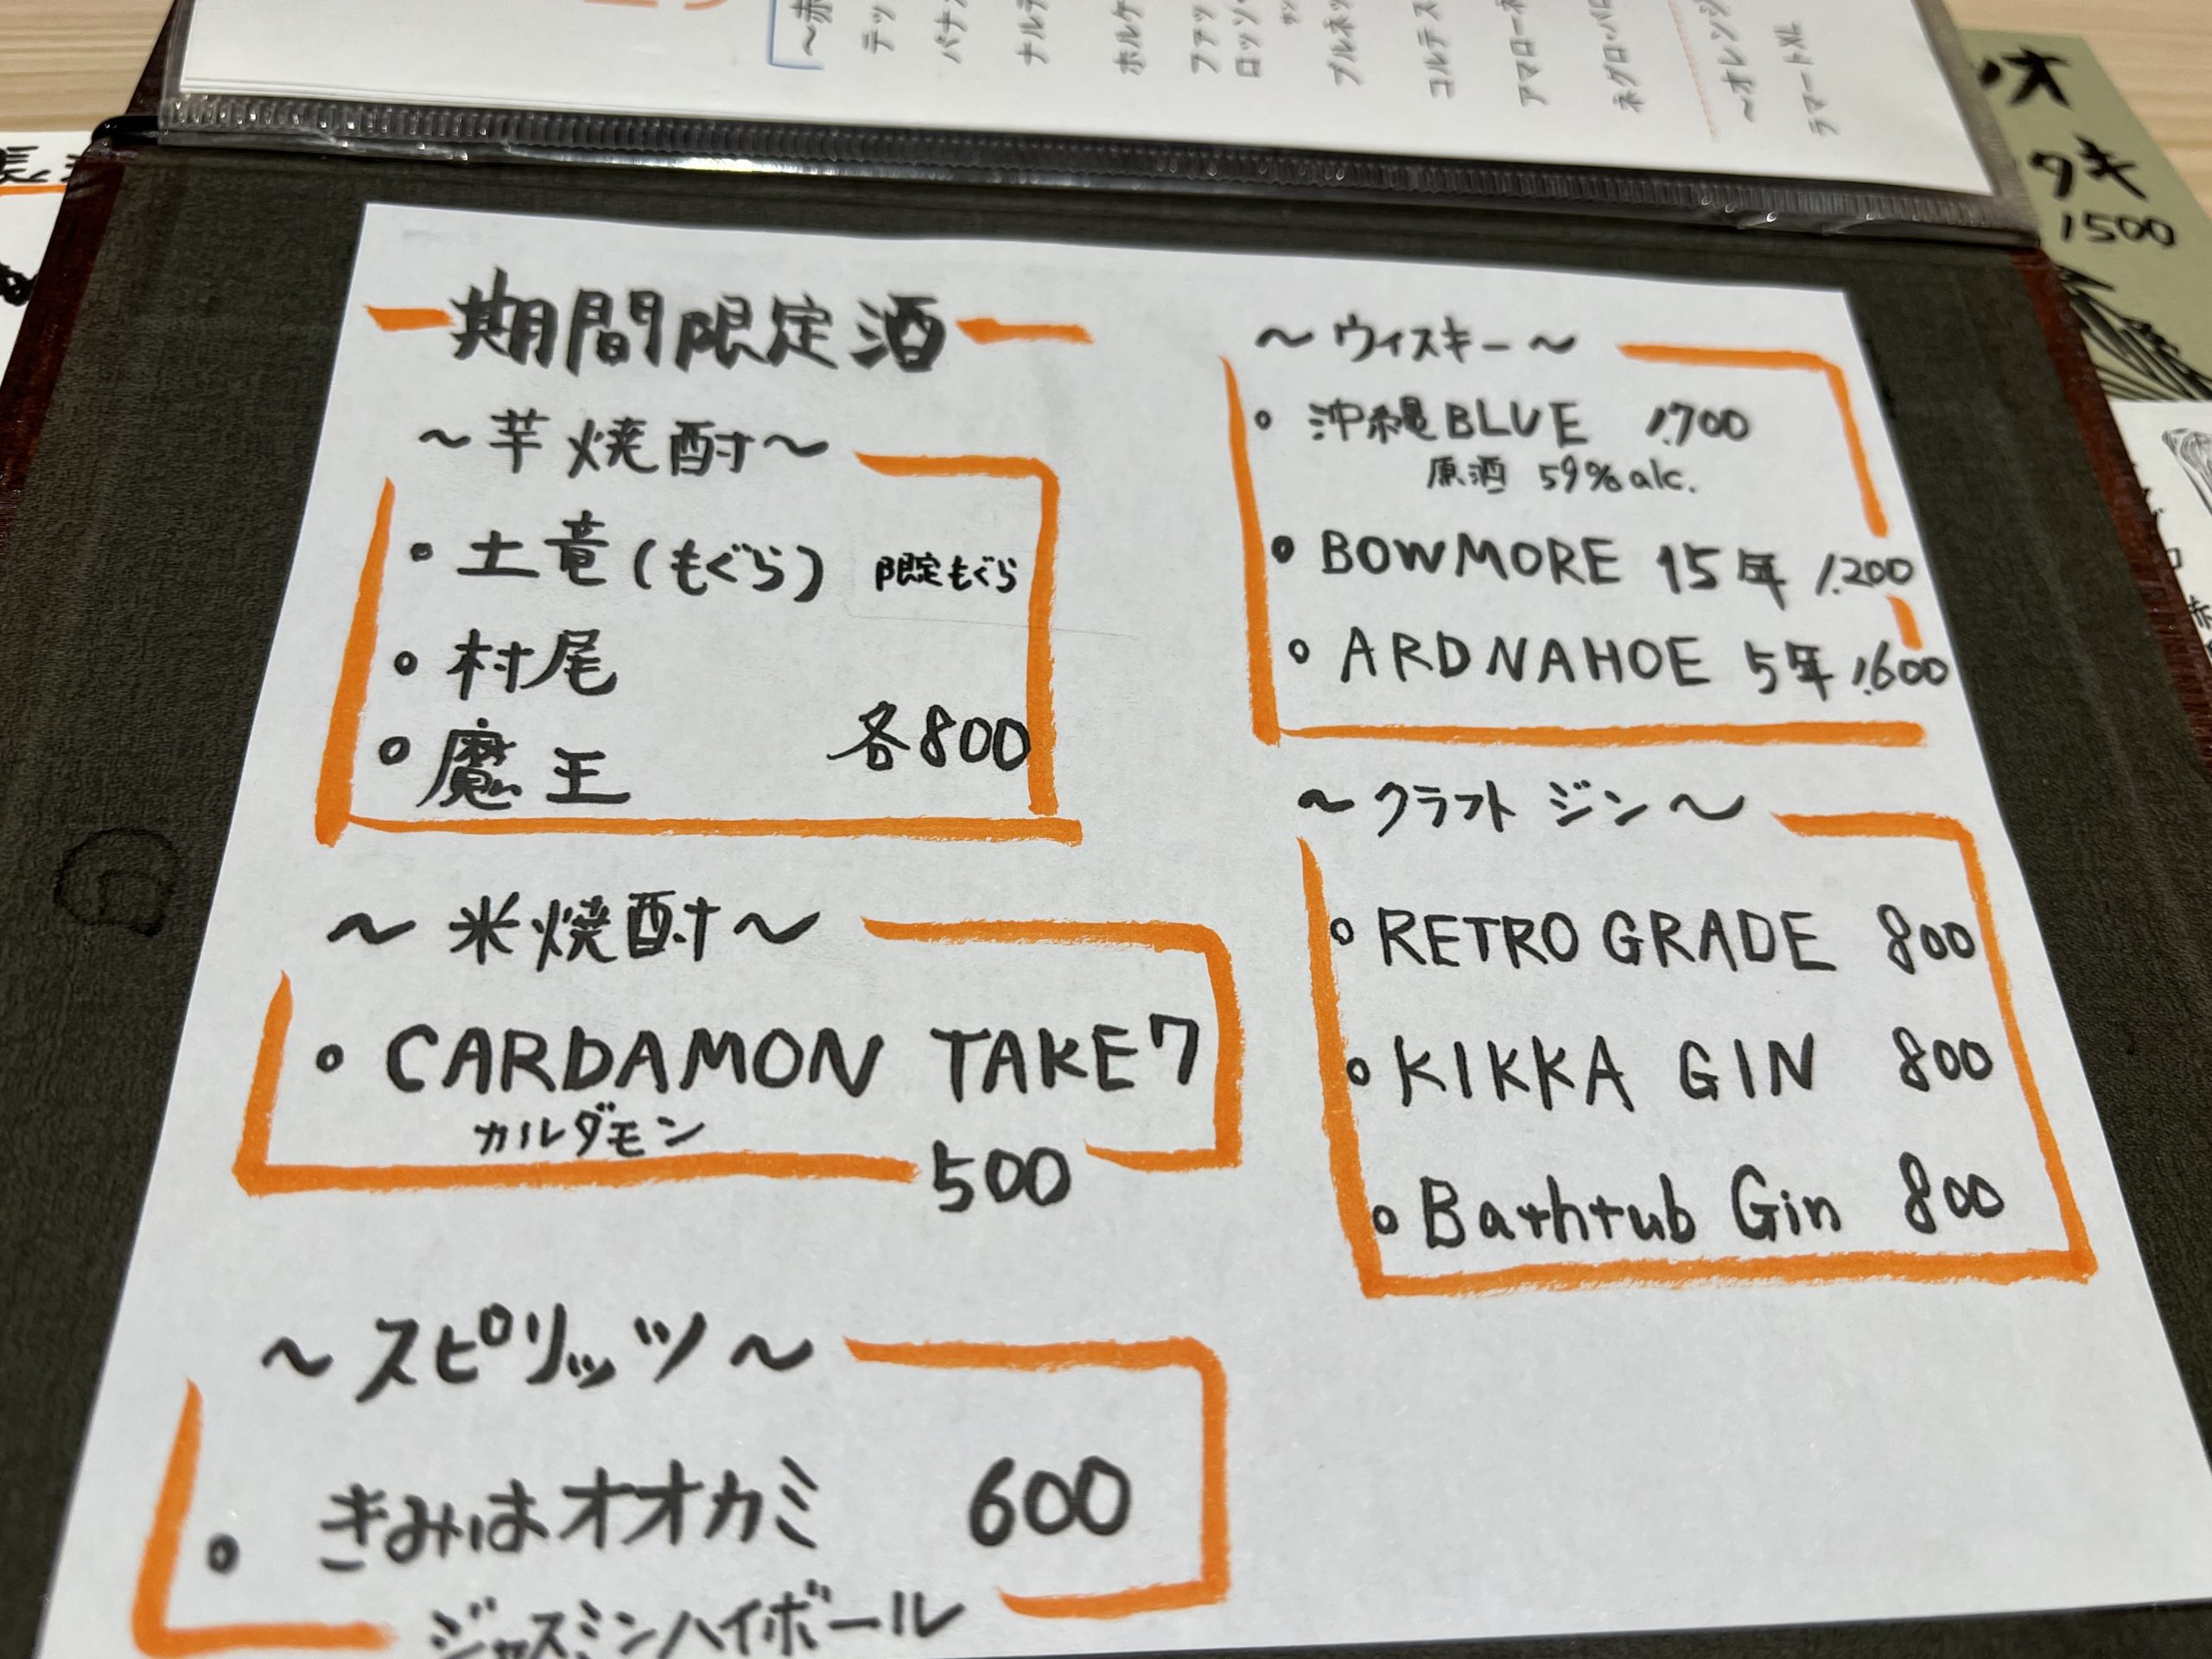 期間限定酒
～芋焼酎～
土竜(もぐら) 限定もぐら
村尾
魔王
各800
～米焼酎～
CARDAMON TAKE7
カルダモン
500
～スピリッツ～
きみはオオカミ 600
ジャスミンハイボール
～ウィスキー～
沖縄BLUE 1.700
原酒 59%alc.
BOWMORE 15年 1.200
ARDNAHOE 5年 1.600
～クラフトジン～
RETRO GRADE 800
KIKKA GIN 800
Bathtub Gin 800
1500